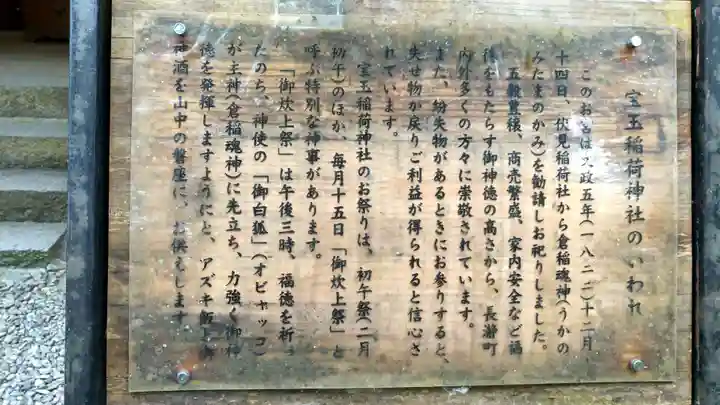 宝玉稲荷神社のいわれ
このお宮は文政五年(一八二二)十二月
十四日、伏見稲荷社から倉稲魂神(うかの
みたまのかみ)を勧請しお祀りしました。
五穀豊穣、商売繁盛、家内安全など福
徳をもたらす御神徳の高さから、長瀞町
内外多くの方々に崇敬されています。
また、紛失物があるときにお参りすると、
失せ物が戻りご利益が得られると信心さ
れています。
宝玉稲荷神社のお祭りは、初午祭(二月
初午)のほか、毎月十五日「御炊上祭」と
呼ぶ特別な神事があります。
「御炊上祭」は午後三時、福徳を祈っ
たのち、神使の「御白狐」(オビャッコ)
が主神(倉稲魂神)に先立ち、力強く御神
徳を発揮しますようにと、アズキ飯と御
神酒を山中の磐座に、お供えします